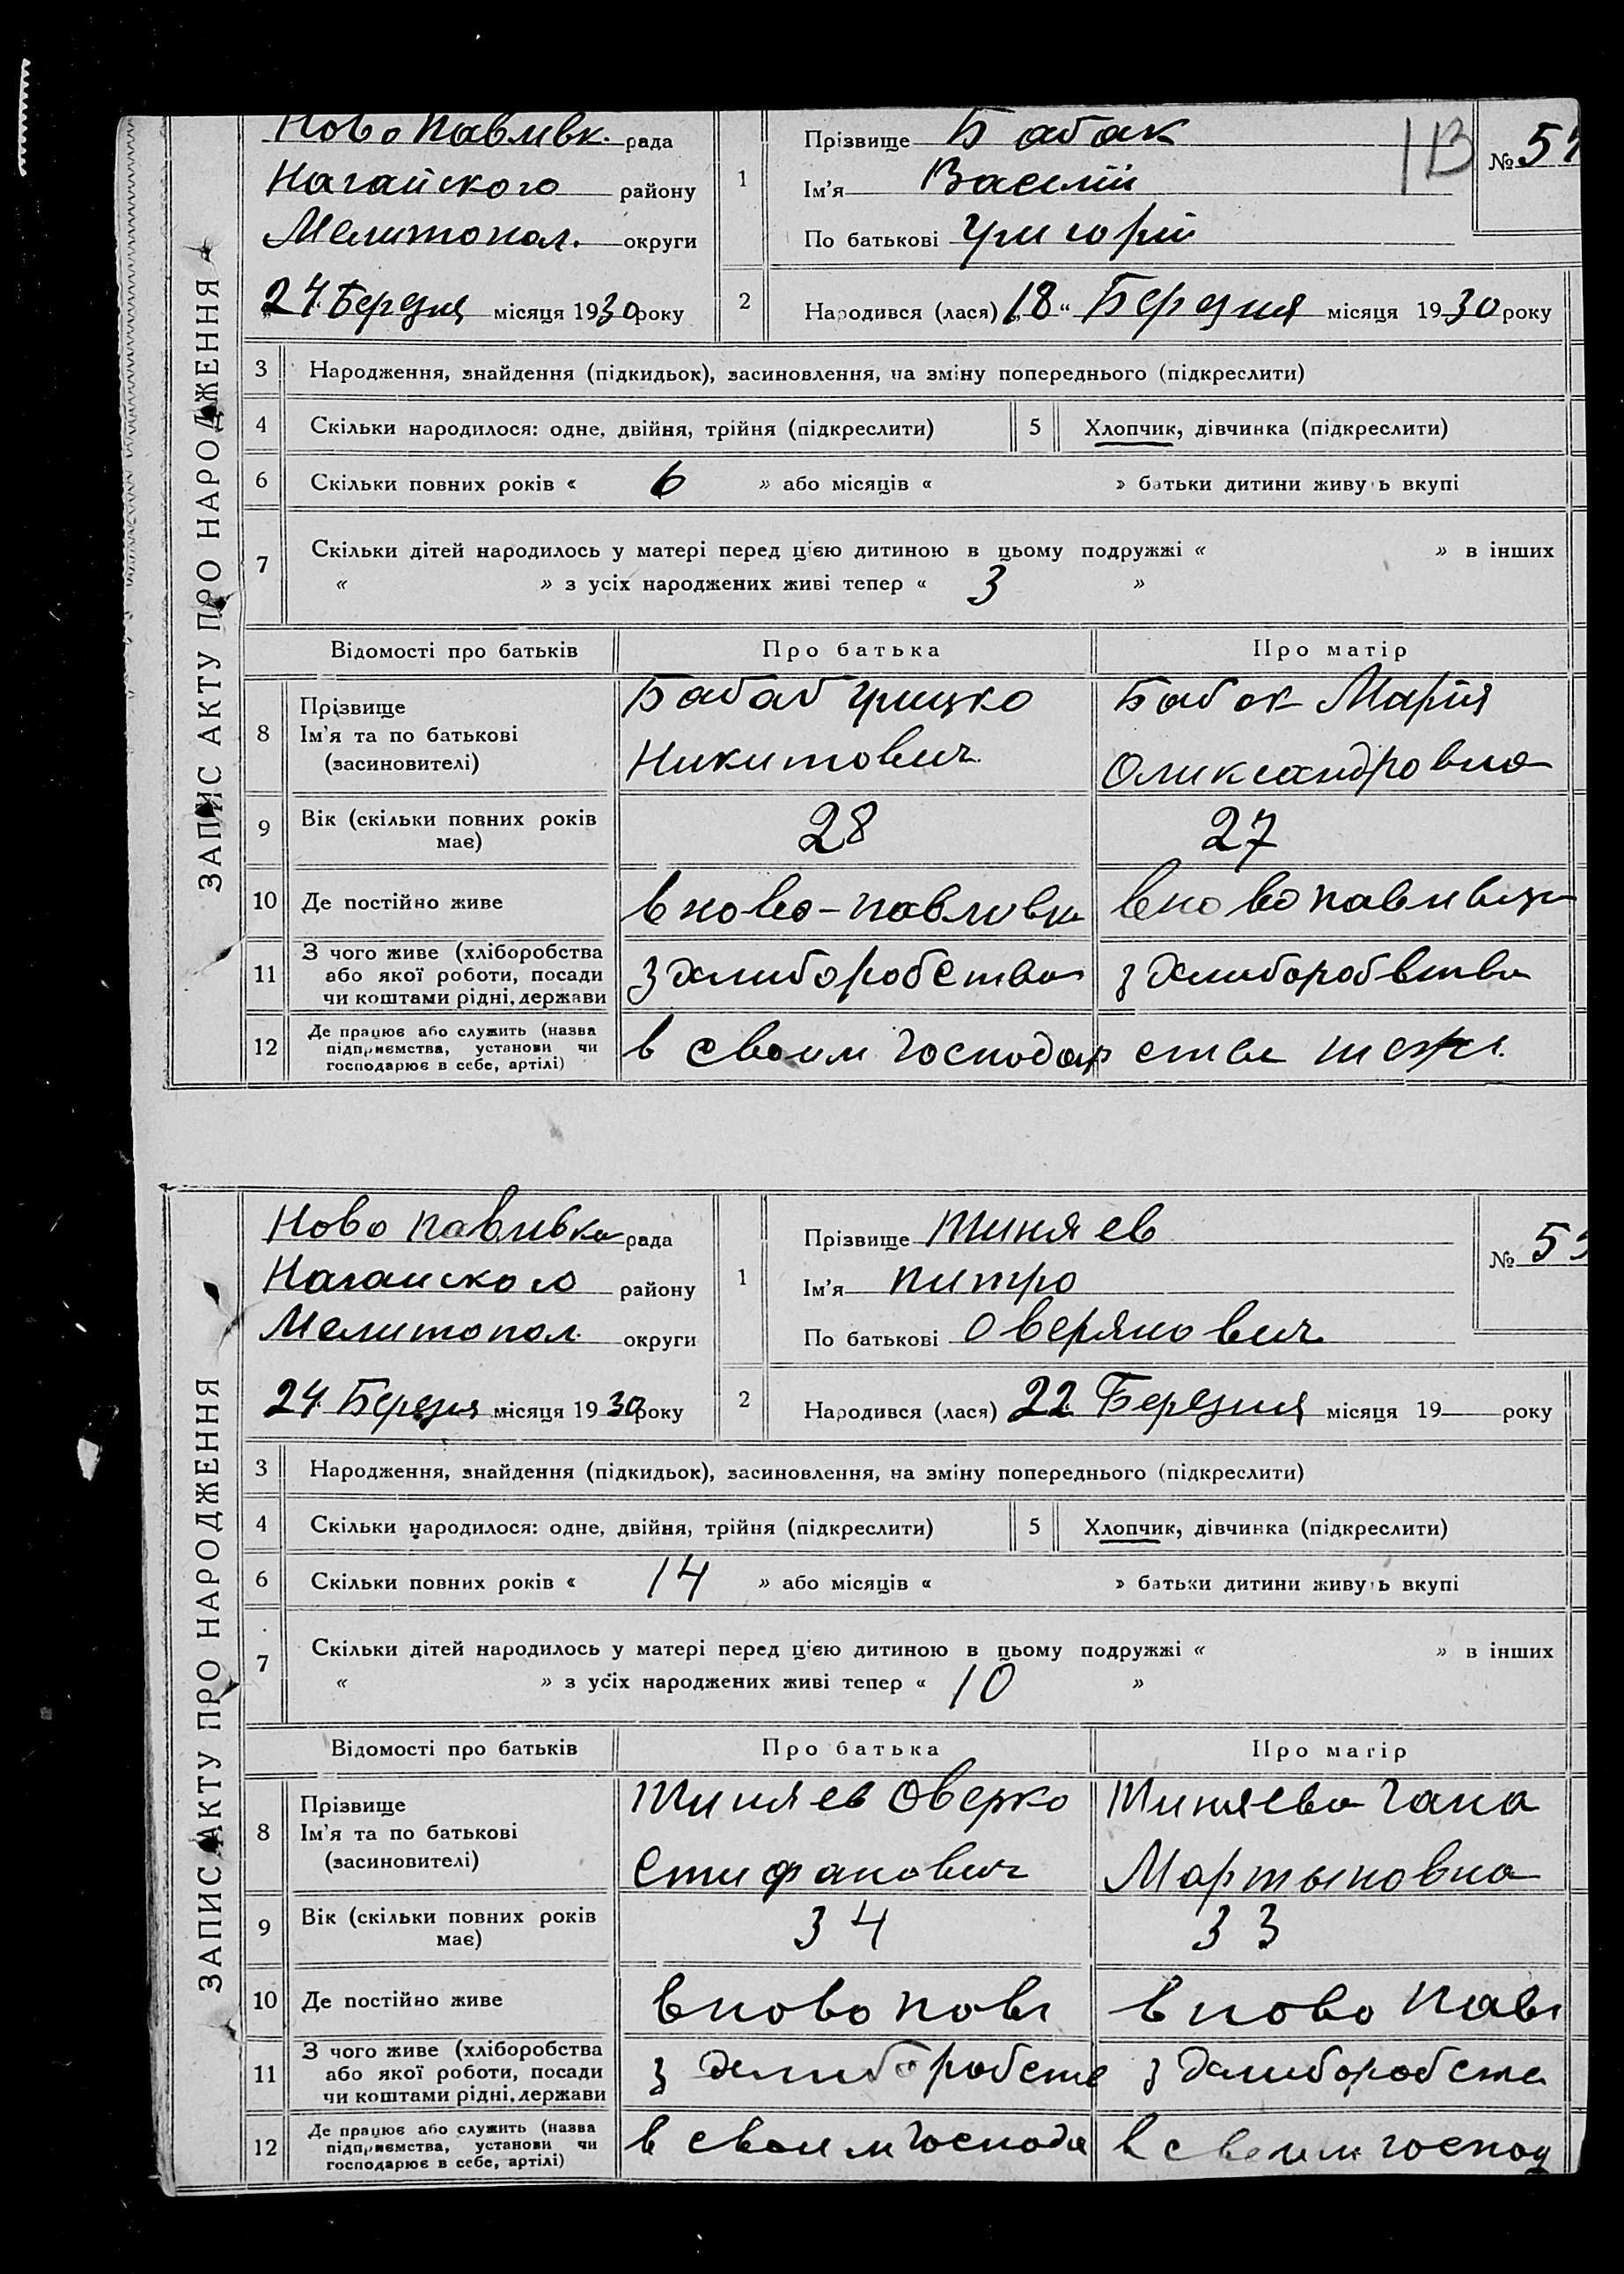 ЗАПИС АКТУ ПРО НАРОДЖЕННЯ
Ново Павливк. рада
Нагайского району
Мелитопол. округи
24 Березня місяця 1930 року
1 Прізвище Бабак
Ім'я Василій
По батькові Григорій
113
№ 5
2 Народився (лася) „18“ Березня місяця 1930 року
3 Народження, знайдення (підкидьок), засиновлення, на зміну попереднього (підкреслити)
4 Скільки народилося: одне, двійня, трійня (підкреслити) 5 Хлопчик, дівчинка (підкреслити)
6 Скільки повних років « 6 » або місяців « » батьки дитини живуть вкупі
7 Скільки дітей народилось у матері перед цією дитиною в цьому подружжі « » в інших
« » з усіх народжених живі тепер « 3 »
Відомості про батьків Про батька Про матір
8 Прізвище
Ім'я та по батькові
(засиновителі)
Бабаб Грицко
Никитович
Бабак Марія
Олександровна
9 Вік (скільки повних років має) 28 27
10 Де постійно живе в ново-павливки в ново павливци
11 З чого живе (хліборобства
або якої роботи, посади
чи коштами рідні, держави
з хлиборобства з хлиборобства
12 Де працює або служить (назва
підприємства, установи чи
господарює в себе, артілі)
в своим господарстви
ЗАПИС АКТУ ПРО НАРОДЖЕННЯ
Ново павливка рада
Нагайского району
Мелитопол. округи
24 Березня місяця 1930 року
1 Прізвище Тиняев
Ім'я Питро
По батькові Оверянович
№ 5
2 Народився (лася) 22 Березня місяця 19 року
3 Народження, знайдення (підкидьок), засиновлення, на зміну попереднього (підкреслити)
4 Скільки народилося: одне, двійня, трійня (підкреслити) 5 Хлопчик, дівчинка (підкреслити)
6 Скільки повних років « 14 » або місяців « » батьки дитини живуть вкупі
7 Скільки дітей народилось у матері перед цією дитиною в цьому подружжі « » в інших
« » з усіх народжених живі тепер « 10 »
Відомості про батьків Про батька Про матір
8 Прізвище
Ім'я та по батькові
(засиновителі)
Тиняев Оверко
Стифанович
Тиняева Гана
Мартыновна
9 Вік (скільки повних років має) 34 33
10 Де постійно живе в ново павл в ново павл
11 З чого живе (хліборобства
або якої роботи, посади
чи коштами рідні, держави
з хлиборобств з хлиборобства
12 Де працює або служить (назва
підприємства, установи чи
господарює в себе, артілі)
в своим господа в своим господ